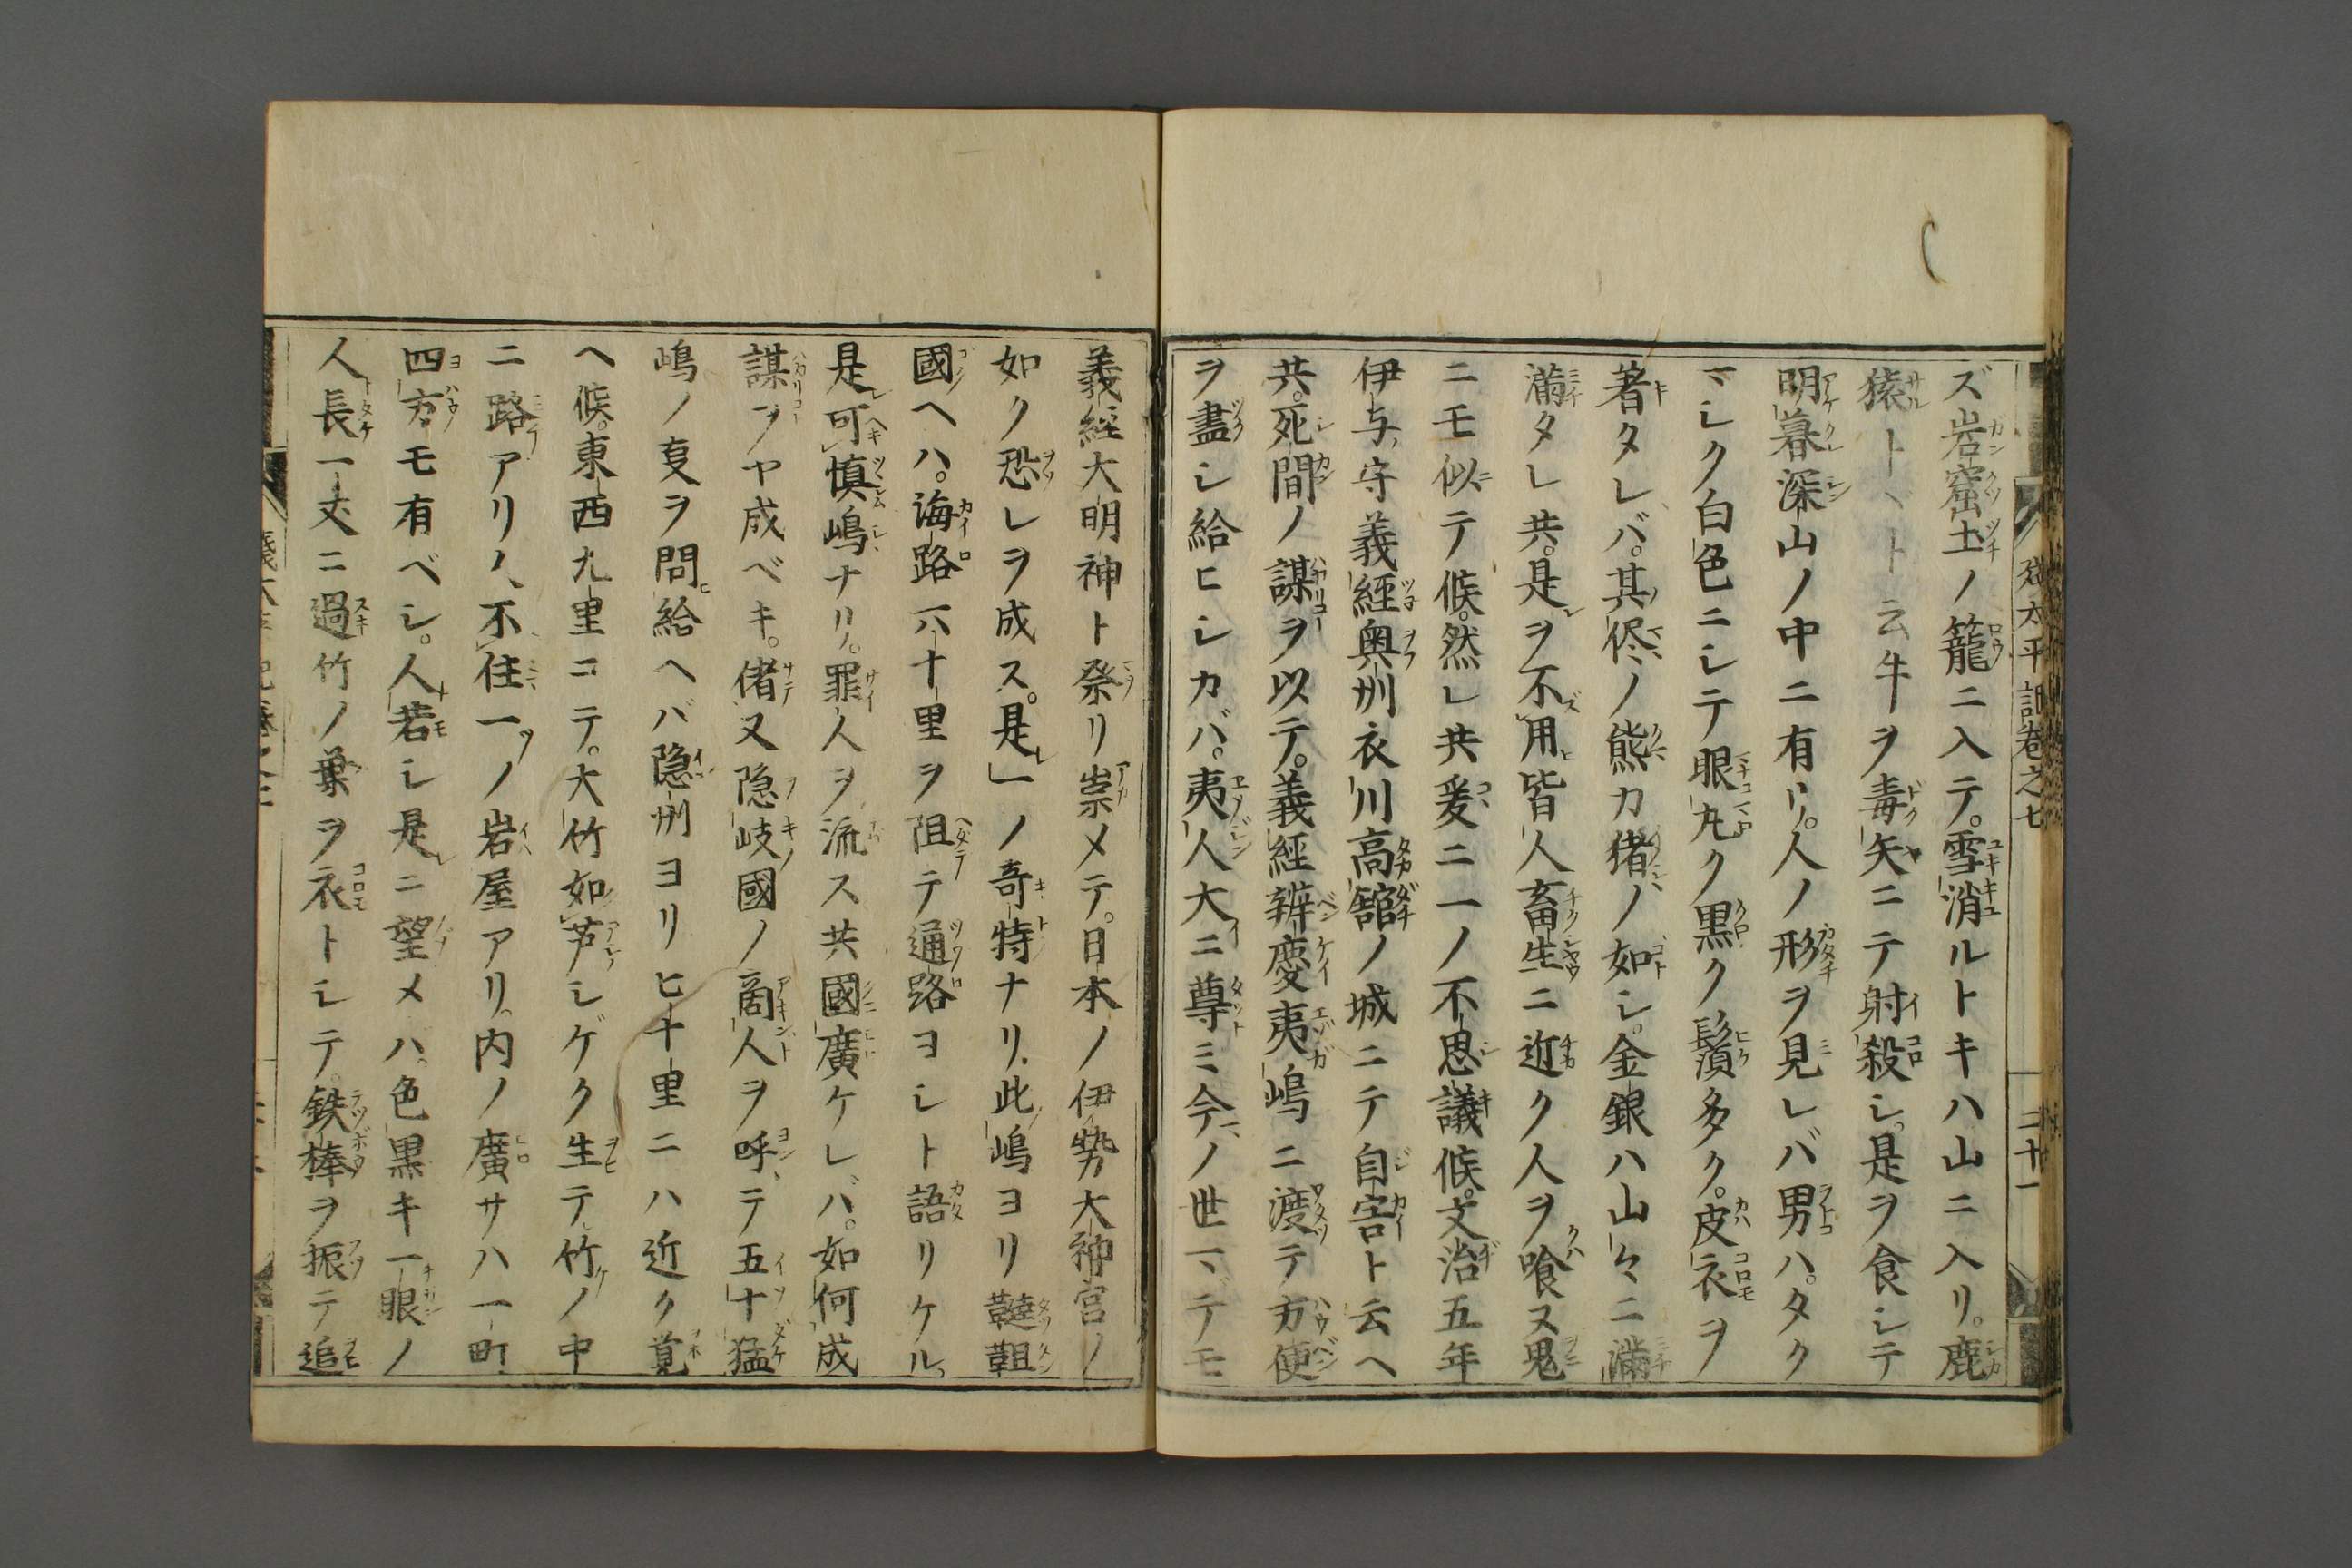 ズ岩窟土ノ籠ニ入テ。雪消ルトキハ山ニ入リ。鹿
猿ト云牛ヲ毒矢ニテ射殺シ是ヲ食シテ
明暮深山ノ中ニ有リ。人ノ形ヲ見レバ男ハ。タク
マシク白色ニシテ眼丸ク黒ク鬚多ク。皮衣ヲ
著タレバ。其侭ノ熊カ猪ノ如シ。金銀ハ山々ニ満
満タレ共。是ヲ不用皆人畜生ニ近ク人ヲ喰ヌ鬼
ニモ似テ候。然レ共爰ニ一ノ不思議候。文治五年
伊与守義經奥州衣川高舘ノ城ニテ自害ト云ヘ
共。死間ノ謀ヲ以テ。義經辨慶夷嶋ニ渡テ方便
ヲ盡シ給ヒシカバ。夷人大ニ尊ミ今ノ世マデモ
義經大明神ト祭リ崇メテ。日本ノ伊勢大神宮ノ
如ク恐レヲ成ス。是一ノ竒特ナリ。此嶋ヨリ韃靼
國ヘハ。海路六十里ヲ阻テ通路ヨシト語リケル
是可慎嶋ナリ。罪人ヲ流ス共國廣ケレバ。如何成
謀ヲヤ成ベキ。偖又隠岐國ノ商人ヲ呼テ五十猛
嶋ノ叓ヲ問給ヘバ隠州ヨリ七十里ニハ近ク覚
ヘ候。東西九里ニテ。大竹如芦シゲク生テ竹ノ中
ニ路アリ人不住一ツノ岩屋アリ。内ノ廣サハ一町
四方モ有ベシ。人若シ是ニ望メハ。色黒キ一眼ノ
人長一丈ニ過竹ノ葉ヲ衣トシテ。鉄棒ヲ振テ追
太平記巻之七
二十一